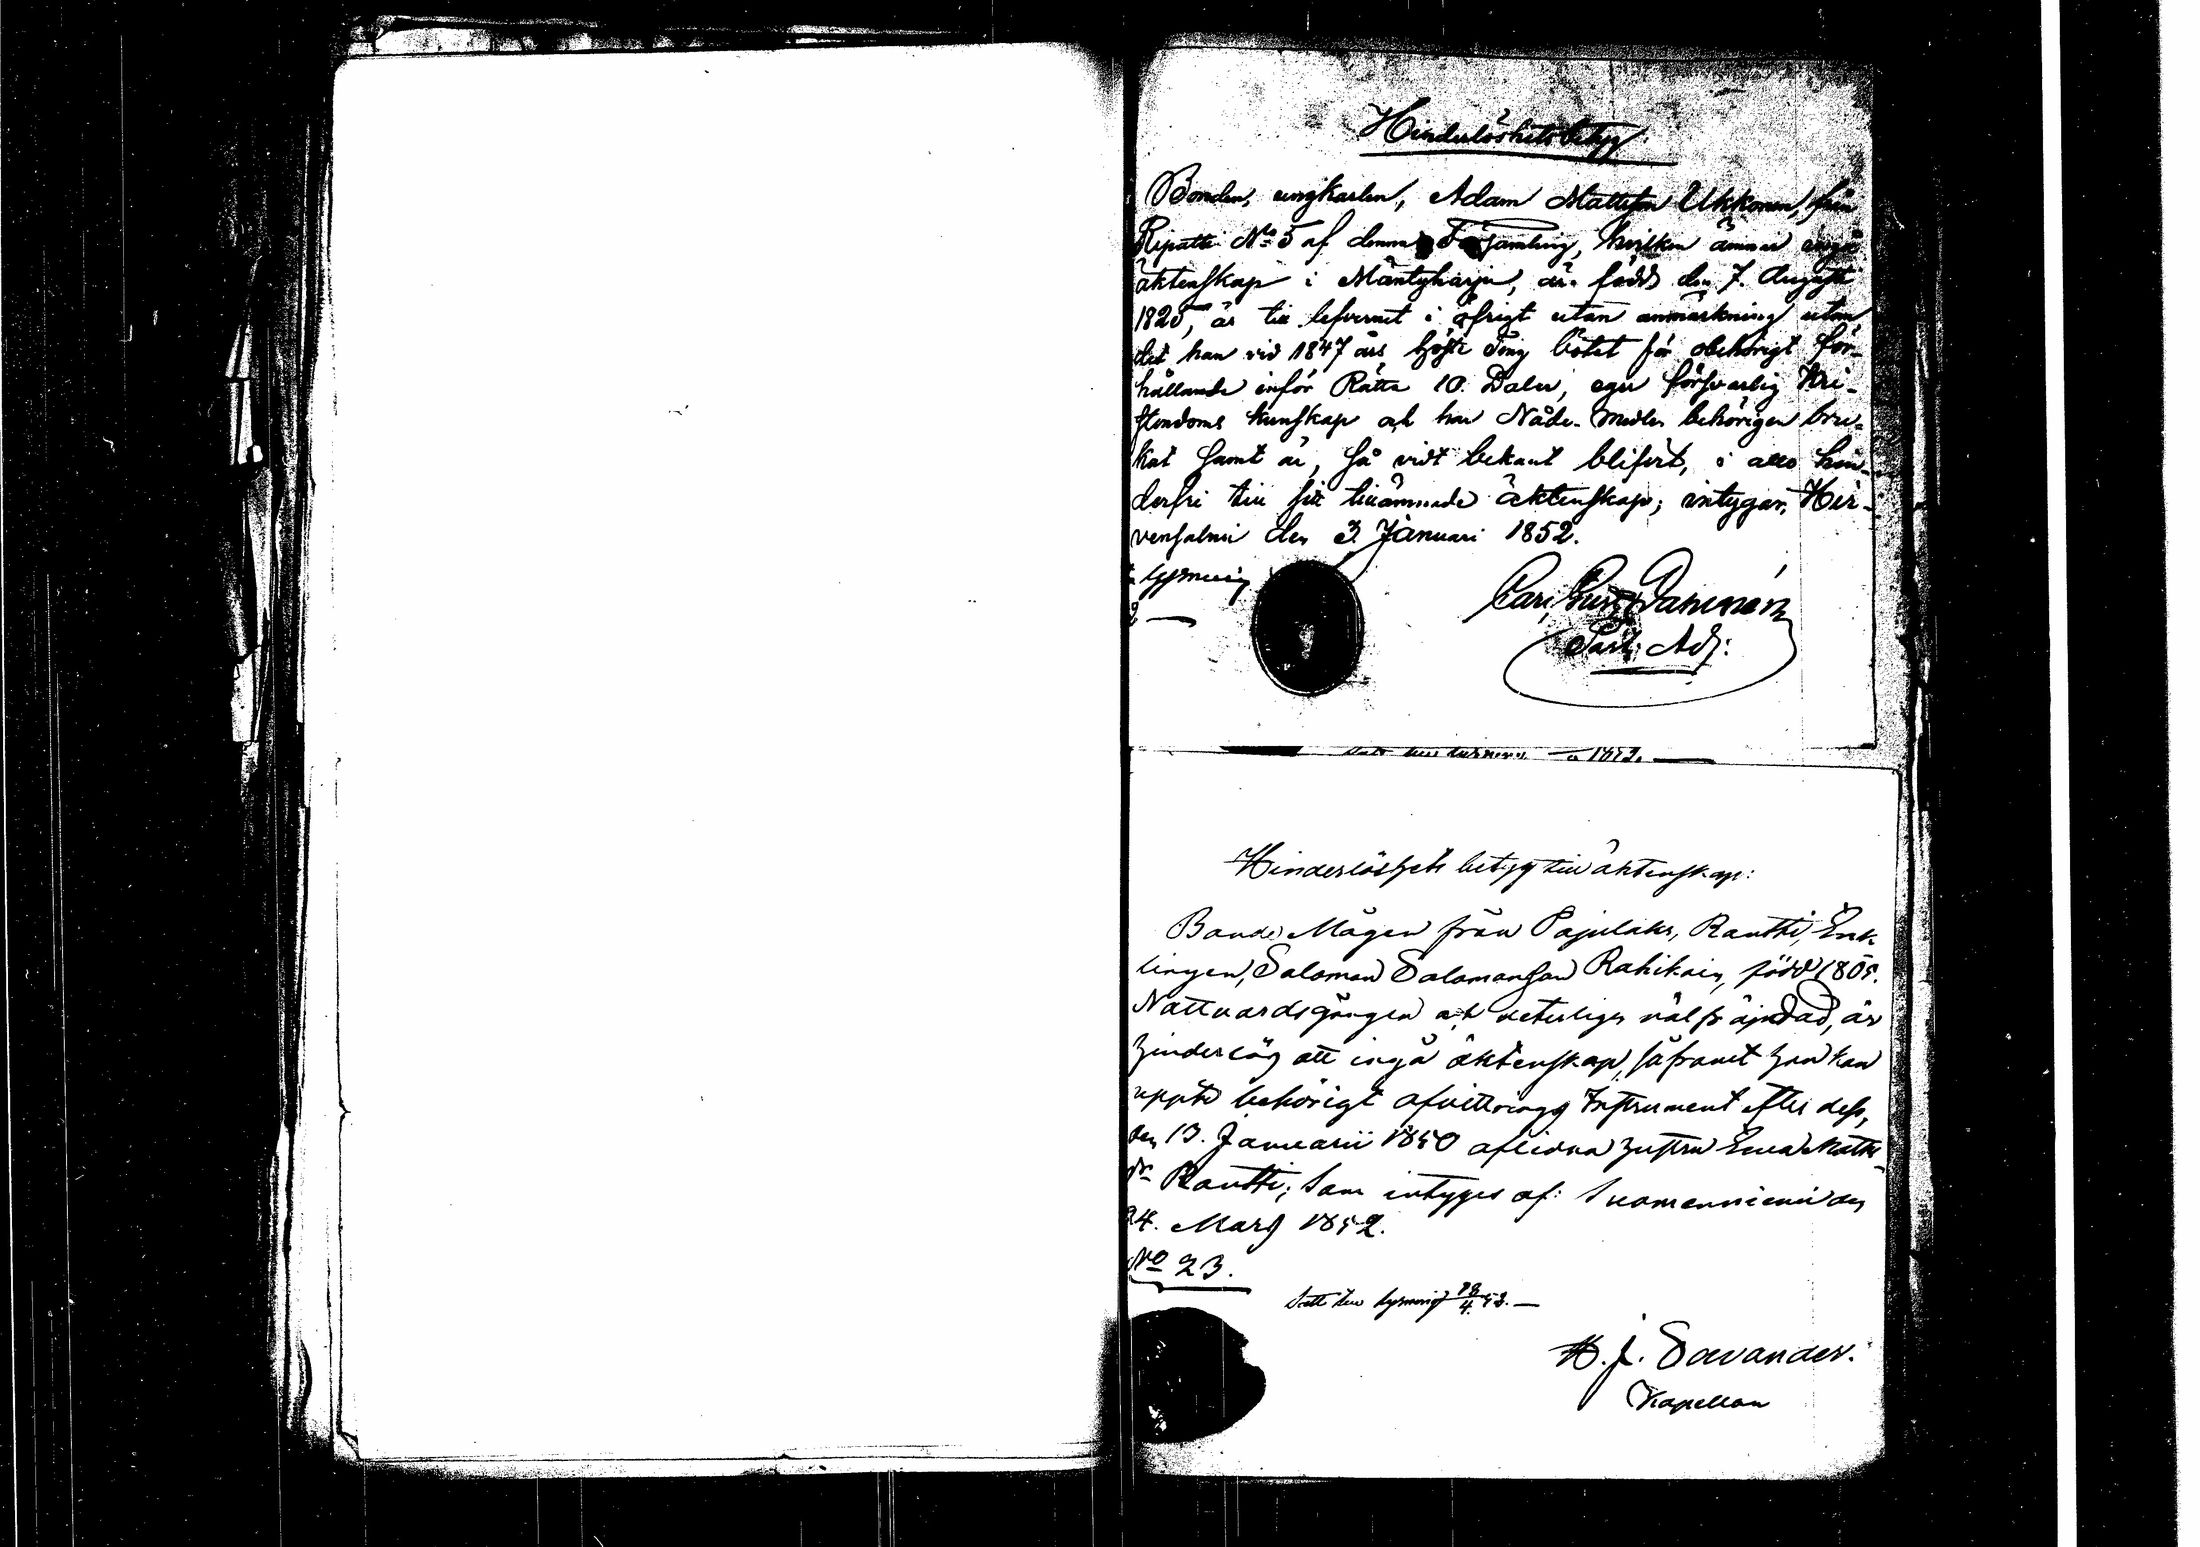 Hinderlöshets betyg
Bonden, ungkarlen, Adam Mattsson Ukkonen, från
Ripatti No 5 af denna Församling, hvilken ämnar ingå
äktenskap i Mäntyharju, är född den 7. Augusti
1825, är till lefvernet i öfrigt utan anmärkning utan
det han vid 1847 års höste Ting bötat för obehörigt för-
hållande inför Rätta 10. Daler, eger försvarlig Kri-
stendoms kunskap och har Nåde-medlen behörigen bru-
kat samt är, så vidt bekant blifvit, i allo hin-
derfri till sitt tillämnade äktenskap; intygar, Hir-
vensalmi den 3 Januari 1852.
lysning
2 —
Carl Gust Dammén
Past: Adj:
1852. —
Hinderlöshets betyg till äktenskap:
Bonde Mågen från Pajulaks, Rautti, Enk-
lingen, Salomon Salomonson Rahikain, född 1805.
Nattvardsgången och veterligen väl fräjdad, är
hinderlös att ingå äktenskap, såframt han kan
uppte behörigt afvittrings Instrument efter dess,
den 13. Januarii 1850 aflidna hustru Eva Matts-
dr Rautti; som intygas af: Suomenniemi den
24. Mars 1852.
No 23.
Satt till lysning 18/4 52. —
H. J. Savander.
Kapellan